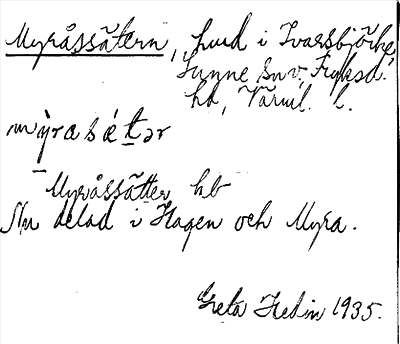 Myråssätern, hmd i Ivarsbjörke,
Sunne sn v, Fryksd.
hd, Värml. l.
myrasætər
Myråssätter hb
Nu delad i Hagen och Myra.
Greta Hedin 1935.